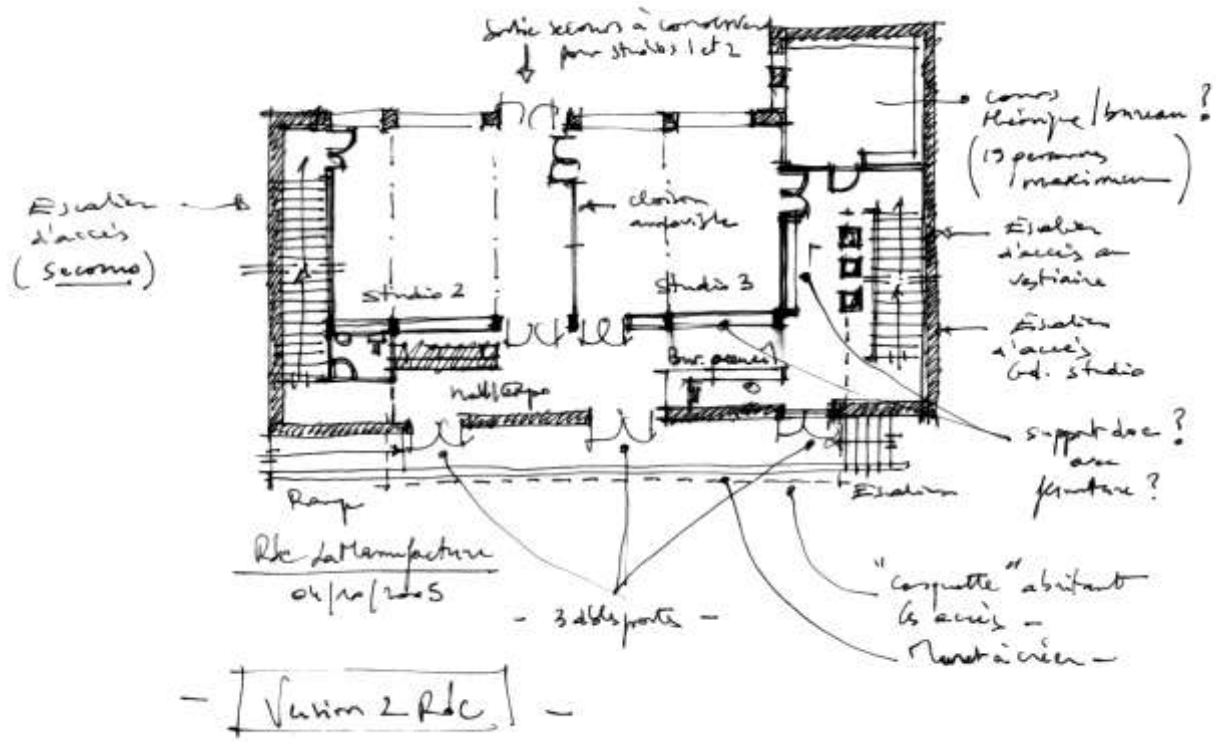 Sortie secours à
pour studios 1 et 2
cours
théorique / bureau ?
(19 personnes
maximum)
Escalier
d'accès
(secours)
cloison
amovible
Escalier
d'accès au
vestiaire
Studio 2
Studio 3
Escalier
d'accès
Gd. studio
Bur. accueil
Hall Expo
support doc ?
avec
fermeture ?
Rampe
Escaliers
Rdc La Manufacture
04/10/2005
"casquette" abritant
les accès -
- 3 dbles portes -
Muret à créer -
- Version 2 RdC -